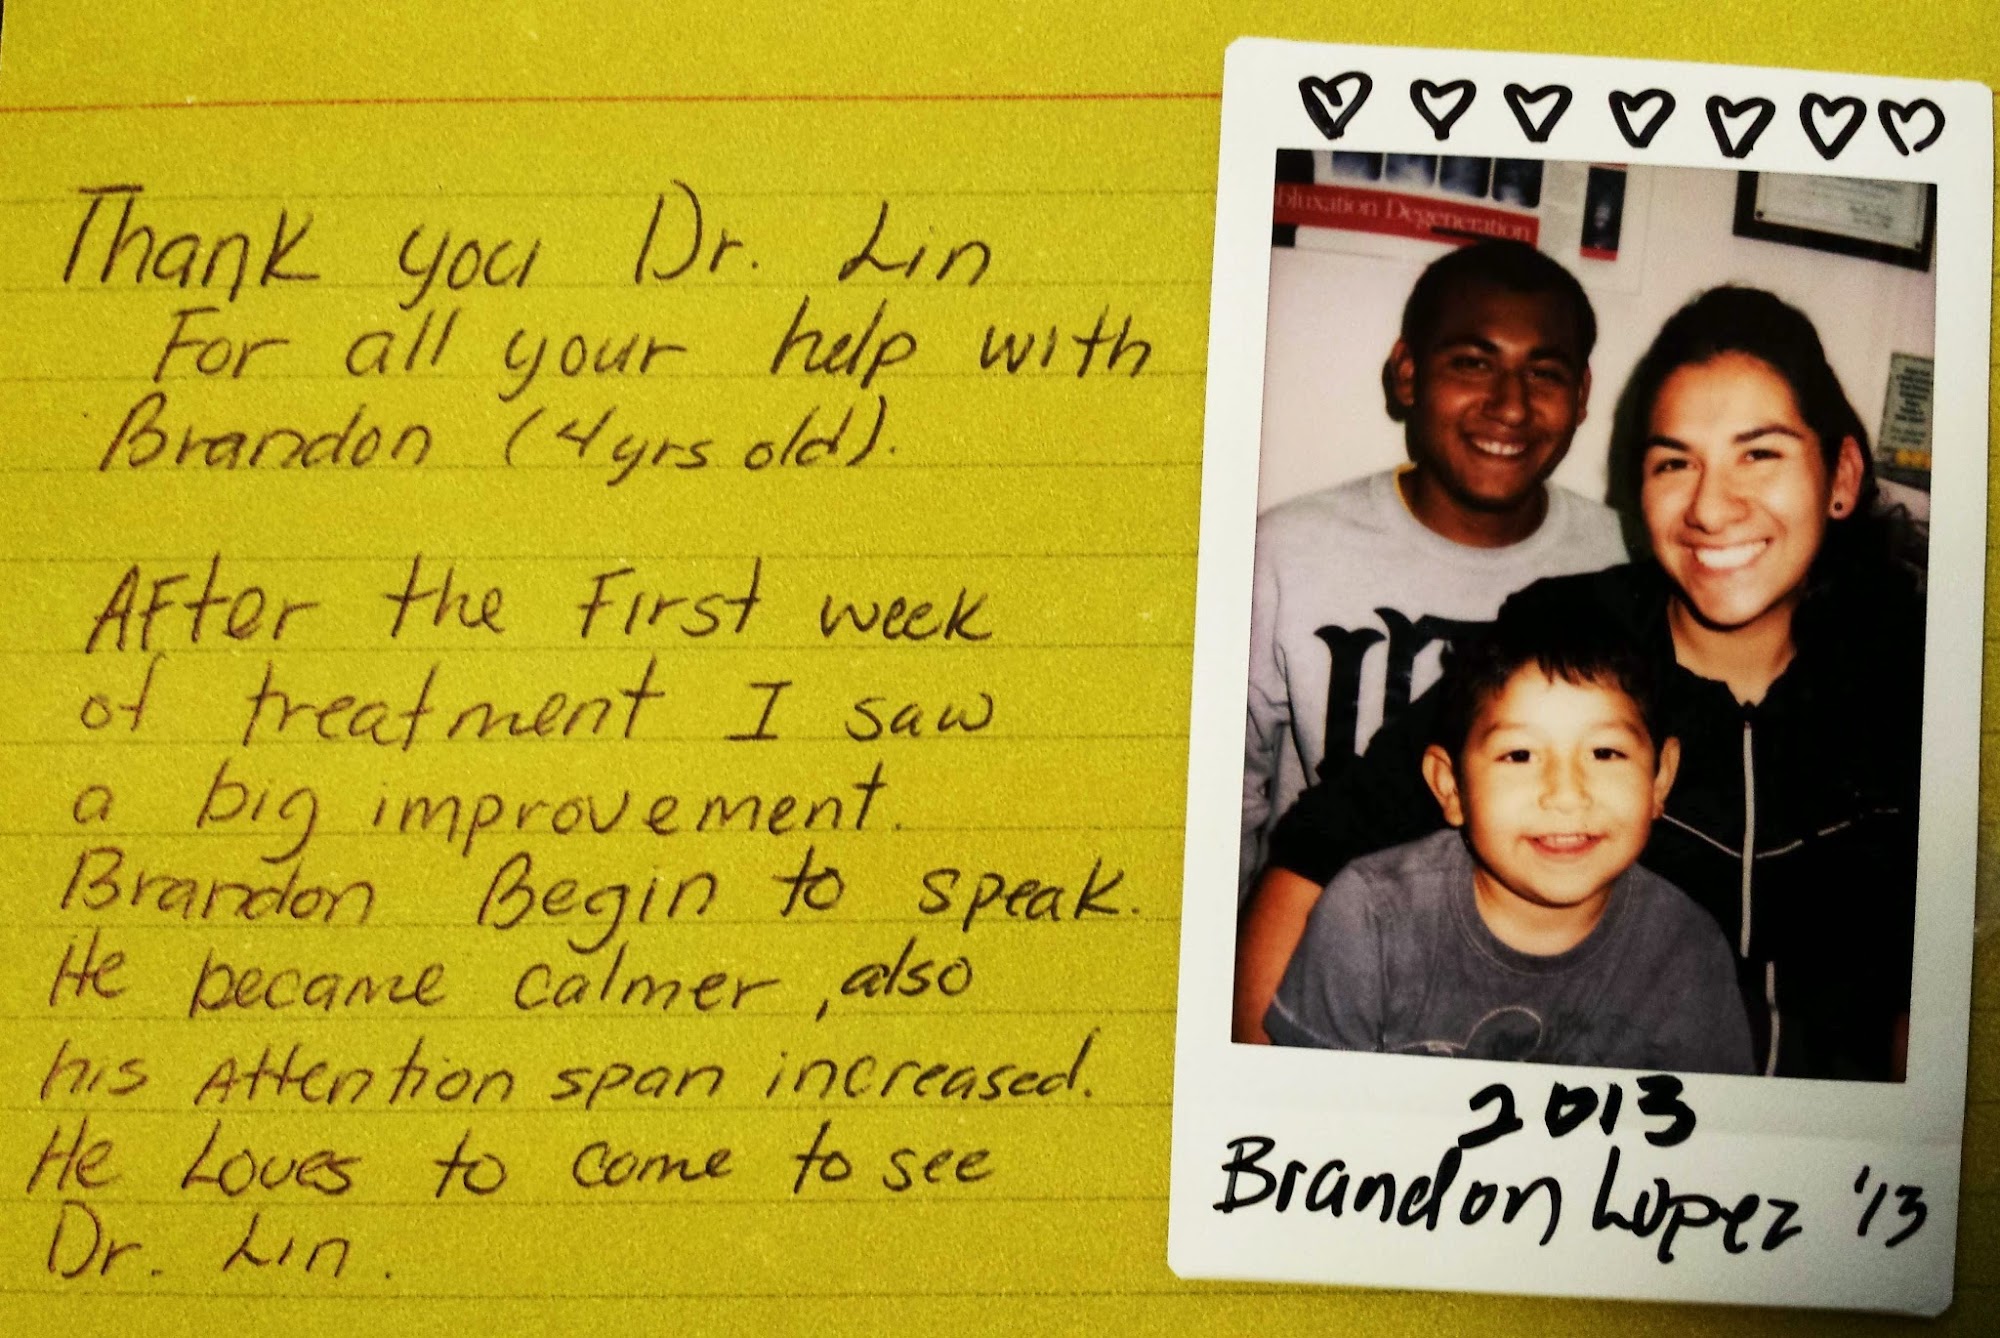 Thank you Dr. Lin
For all your help with
Brandon (4 yrs old).
AFter the First week
of treatment I saw
a big improvement.
Brandon Begin to speak.
He became calmer, also
his Attention span increased.
He Loves to come to see
Dr. Lin.
bluxation Degeneration
2013
Brandon Lopez '13